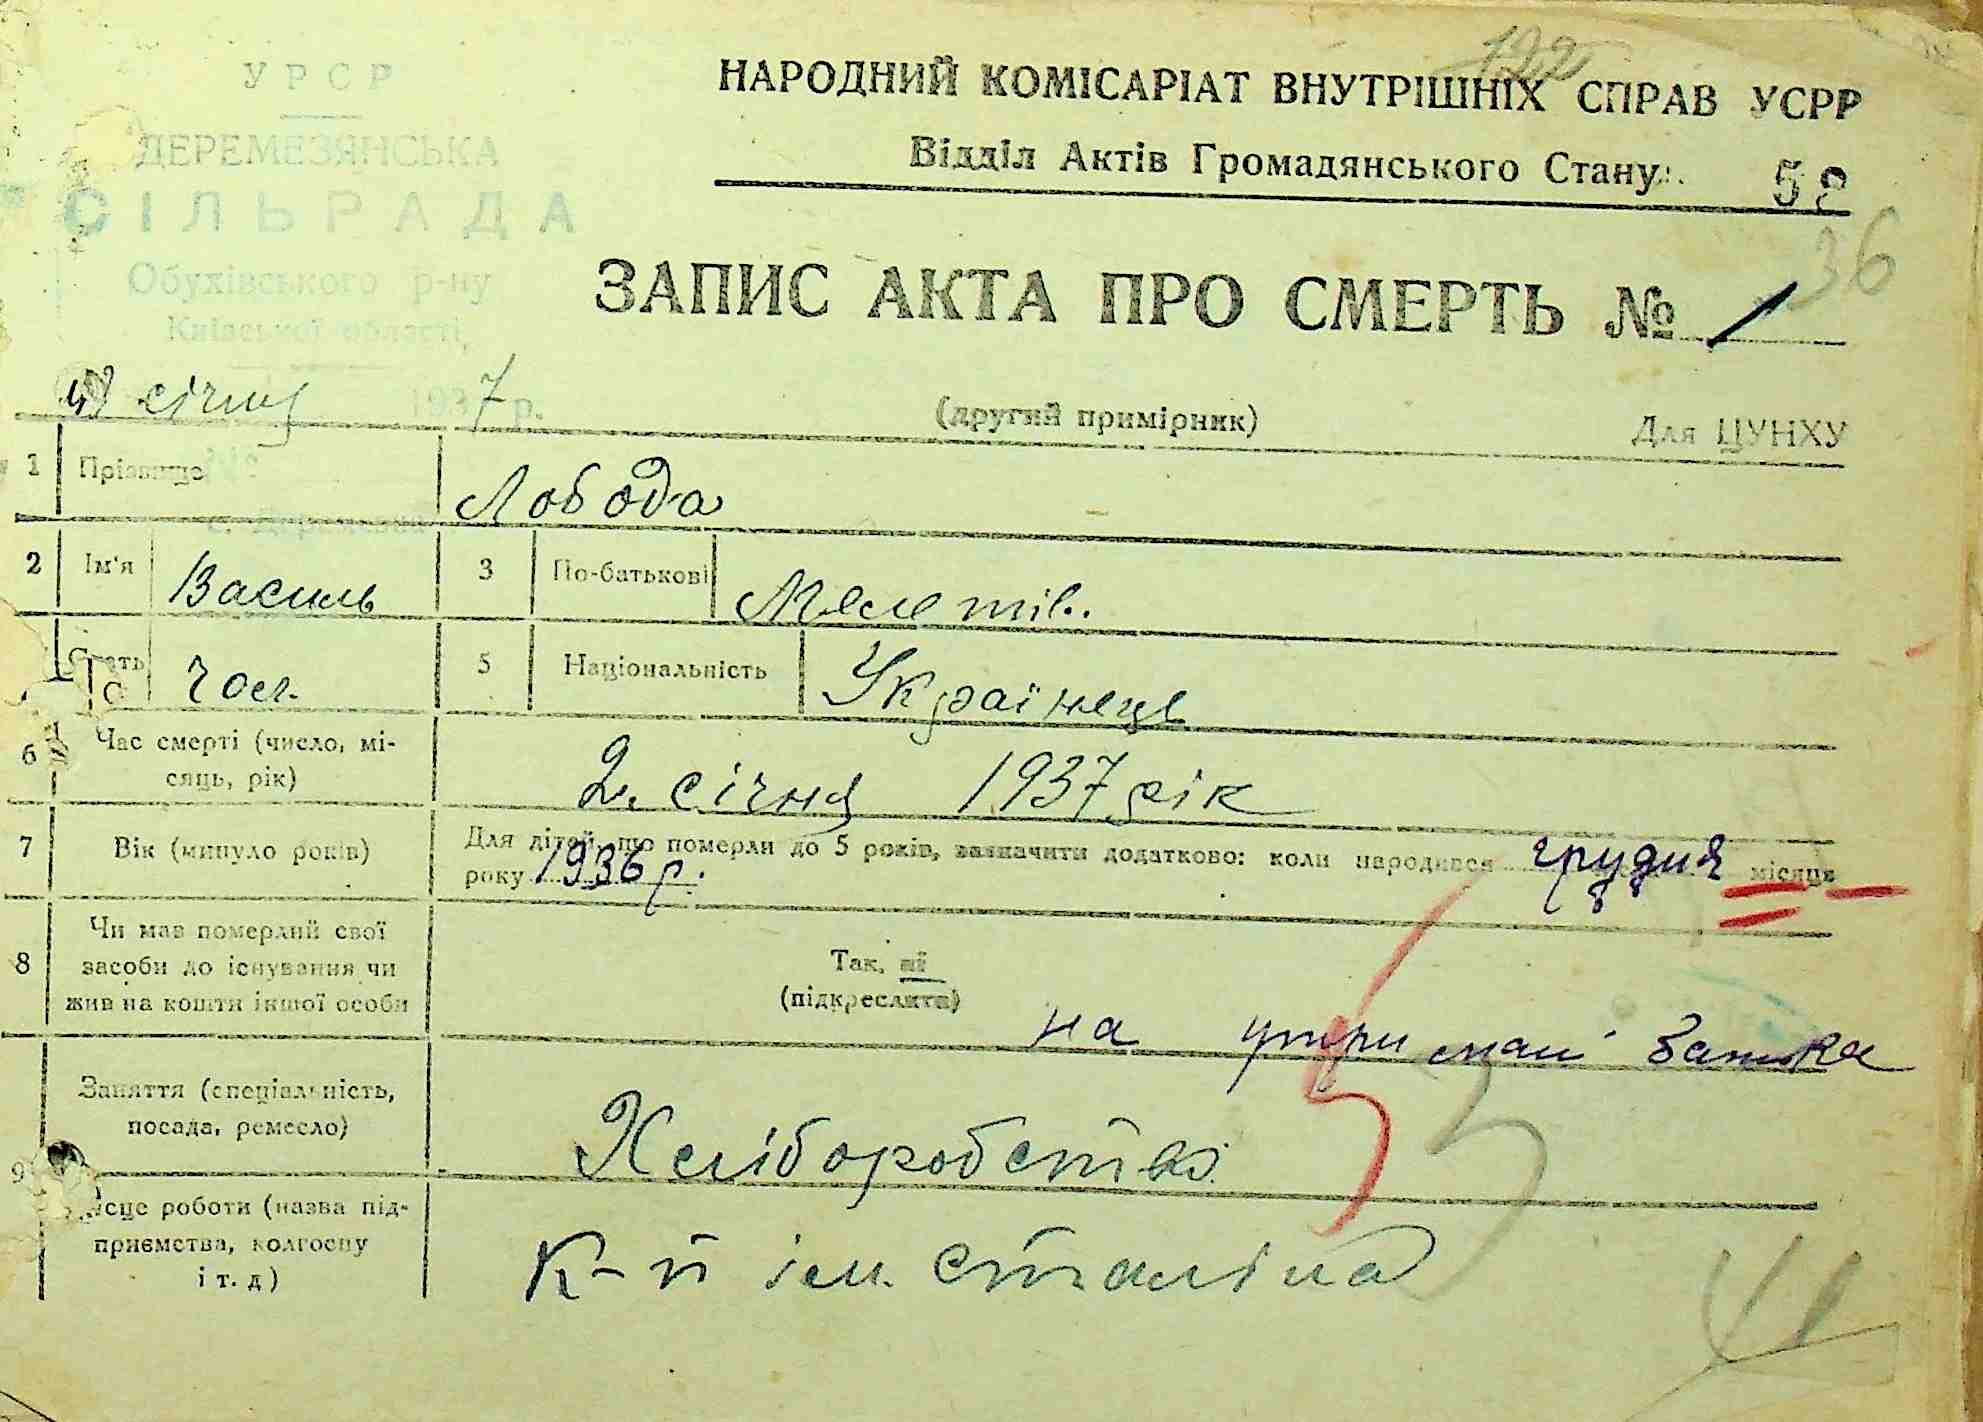 122
УРСР
ДЕРЕМЕЗЯНСЬКА
СІЛЬРАДА
Обухівського р-ну
Київської області
НАРОДНИЙ КОМІСАРІАТ ВНУТРІШНІХ СПРАВ УСРР
Відділ Актів Громадянського Стану
36
ЗАПИС АКТА ПРО СМЕРТЬ № 1
січня 1937 р.
(другий примірник)
Для ЦУНХУ
1 Прізвище Лобода
2 Ім'я Василь 3 По-батькові Мелетів.
Стать чол. 5 Національність Українець
6 Час смерті (число, мі-
сяць, рік)
2. січня 1937 рік
7 Вік (минуло років)
Для дітей, що померли до 5 років, зазначити додатково: коли народився грудня місяця
року 1936 р.
8 Чи мав померлий свої
засоби до існування чи
жив на кошти іншої особи
Так, ні
(підкреслити)
на утриман батька
9 Заняття (спеціальність,
посада, ремесло)
Хліборобство
Місце роботи (назва під-
приємства, колгоспу
і т. д)
К-п ім. Сталіна